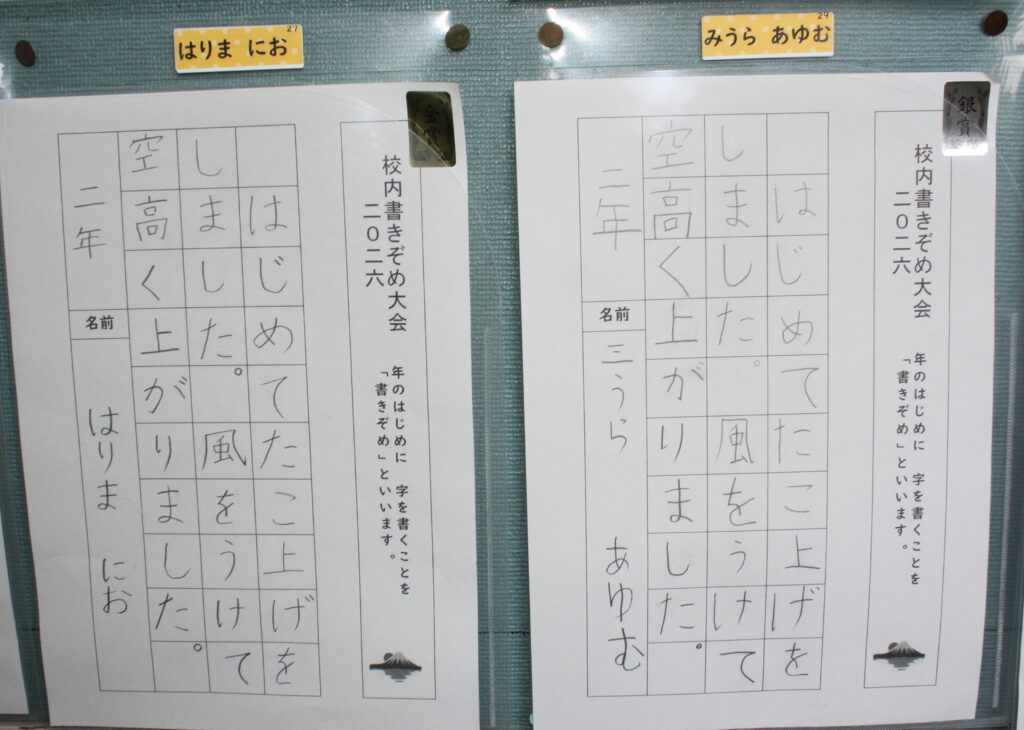 27
はりま にお
金賞
校内書きぞめ大会
二〇二六
年のはじめに 字を書くことを
「書きぞめ」といいます。
はじめてたこ上げを
しました。風をうけて
空高く上がりました。
二年
名前
はりま にお
29
みうら あゆむ
銀賞
校内書きぞめ大会
二〇二六
年のはじめに 字を書くことを
「書きぞめ」といいます。
はじめてたこ上げを
しました。風をうけて
空高く上がりました。
二年
名前
三うら あゆむ